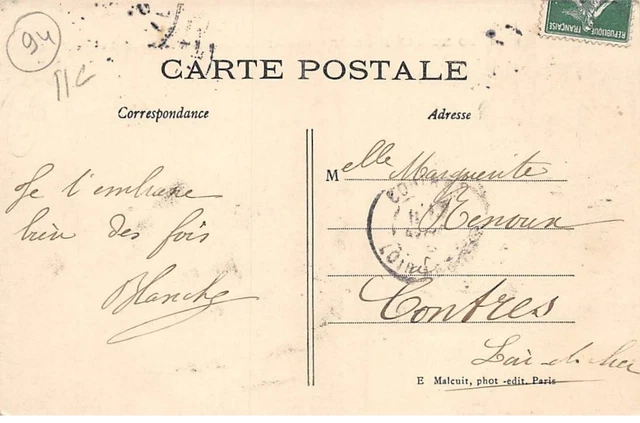 94
11c
REPUBLIQUE FRANCAISE
CARTE POSTALE
Correspondance
Adresse
Je t'embrasse
bien des fois
Blanche
Melle Marguerite
Renoux
Contres
Loir-et-cher
E Malcuit, phot -edit. Paris